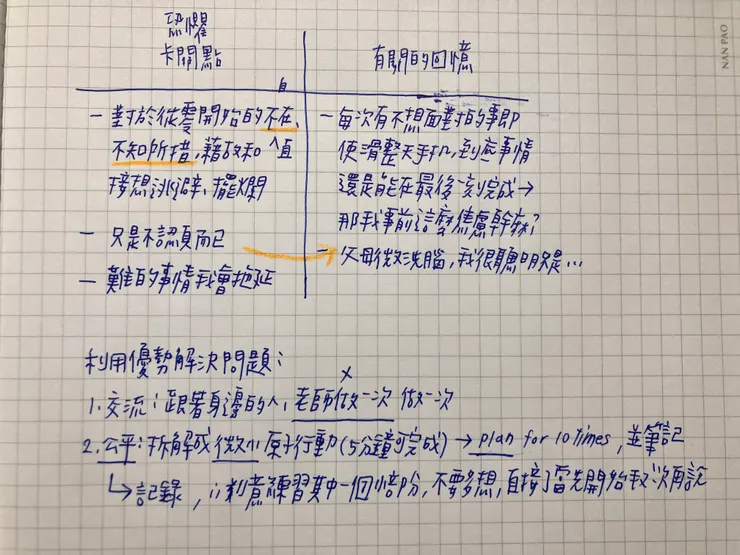 NAN PAO
恐懼
卡關點
有關的回憶
- 對於從零開始的不自在、
不知所措,藉故和 直
接想逃避、擺爛
- 只是不認真而已
- 難的事情我會拖延
- 每次有不想面對的事即
使滑整天手机,到底事情
還是能在最後一刻完成→
那我事前這麼焦慮幹麻?
- 父母微洗腦,我很聰明只是...
利用優勢解決問題:
1. 交流:跟著身邊的人、老師做一次 做一次
x
2. 公平:拆解成微小原子行動(5分鐘可完成)→ plan for 10 times, 並筆記
↳記錄, 練習其中一個 部份,不要多想,直接了當先開始 次再說